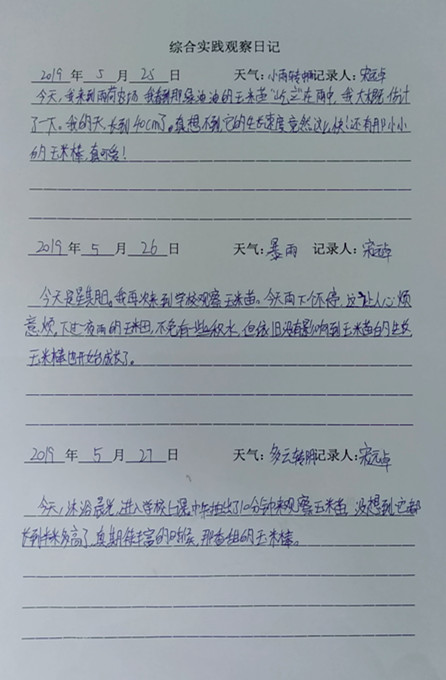 综合实践观察日记
2019 年 5 月 25 日 天气:小雨转晴 记录人:宋远卓
今天,我来到雨荷农场,我看到那绿油油的玉米苗“屹立”在雨中,我大概估计
了一下。我的天,长到40cm了。真想不到它的生长速度竟然这么快!还有那小小
的玉米棒,真可爱!
2019 年 5 月 26 日 天气:暴雨 记录人:宋远卓
今天安星集团。我再次来到学校观察玉米苗。今天雨下个不停,这让人心烦
意烦,下过夜雨的玉米田,不免有一些积水,但依旧没有影响到玉米苗的生长
玉米棒也开始成长了。
2019 年 5 月 27 日 天气:多云转阴 记录人:宋远卓
今天,沐浴晨光,进入学校上课中午抽出了10分钟来观察玉米苗,没想到它都
长到半米多高了,真期待丰富的时候,那香甜的玉米棒。